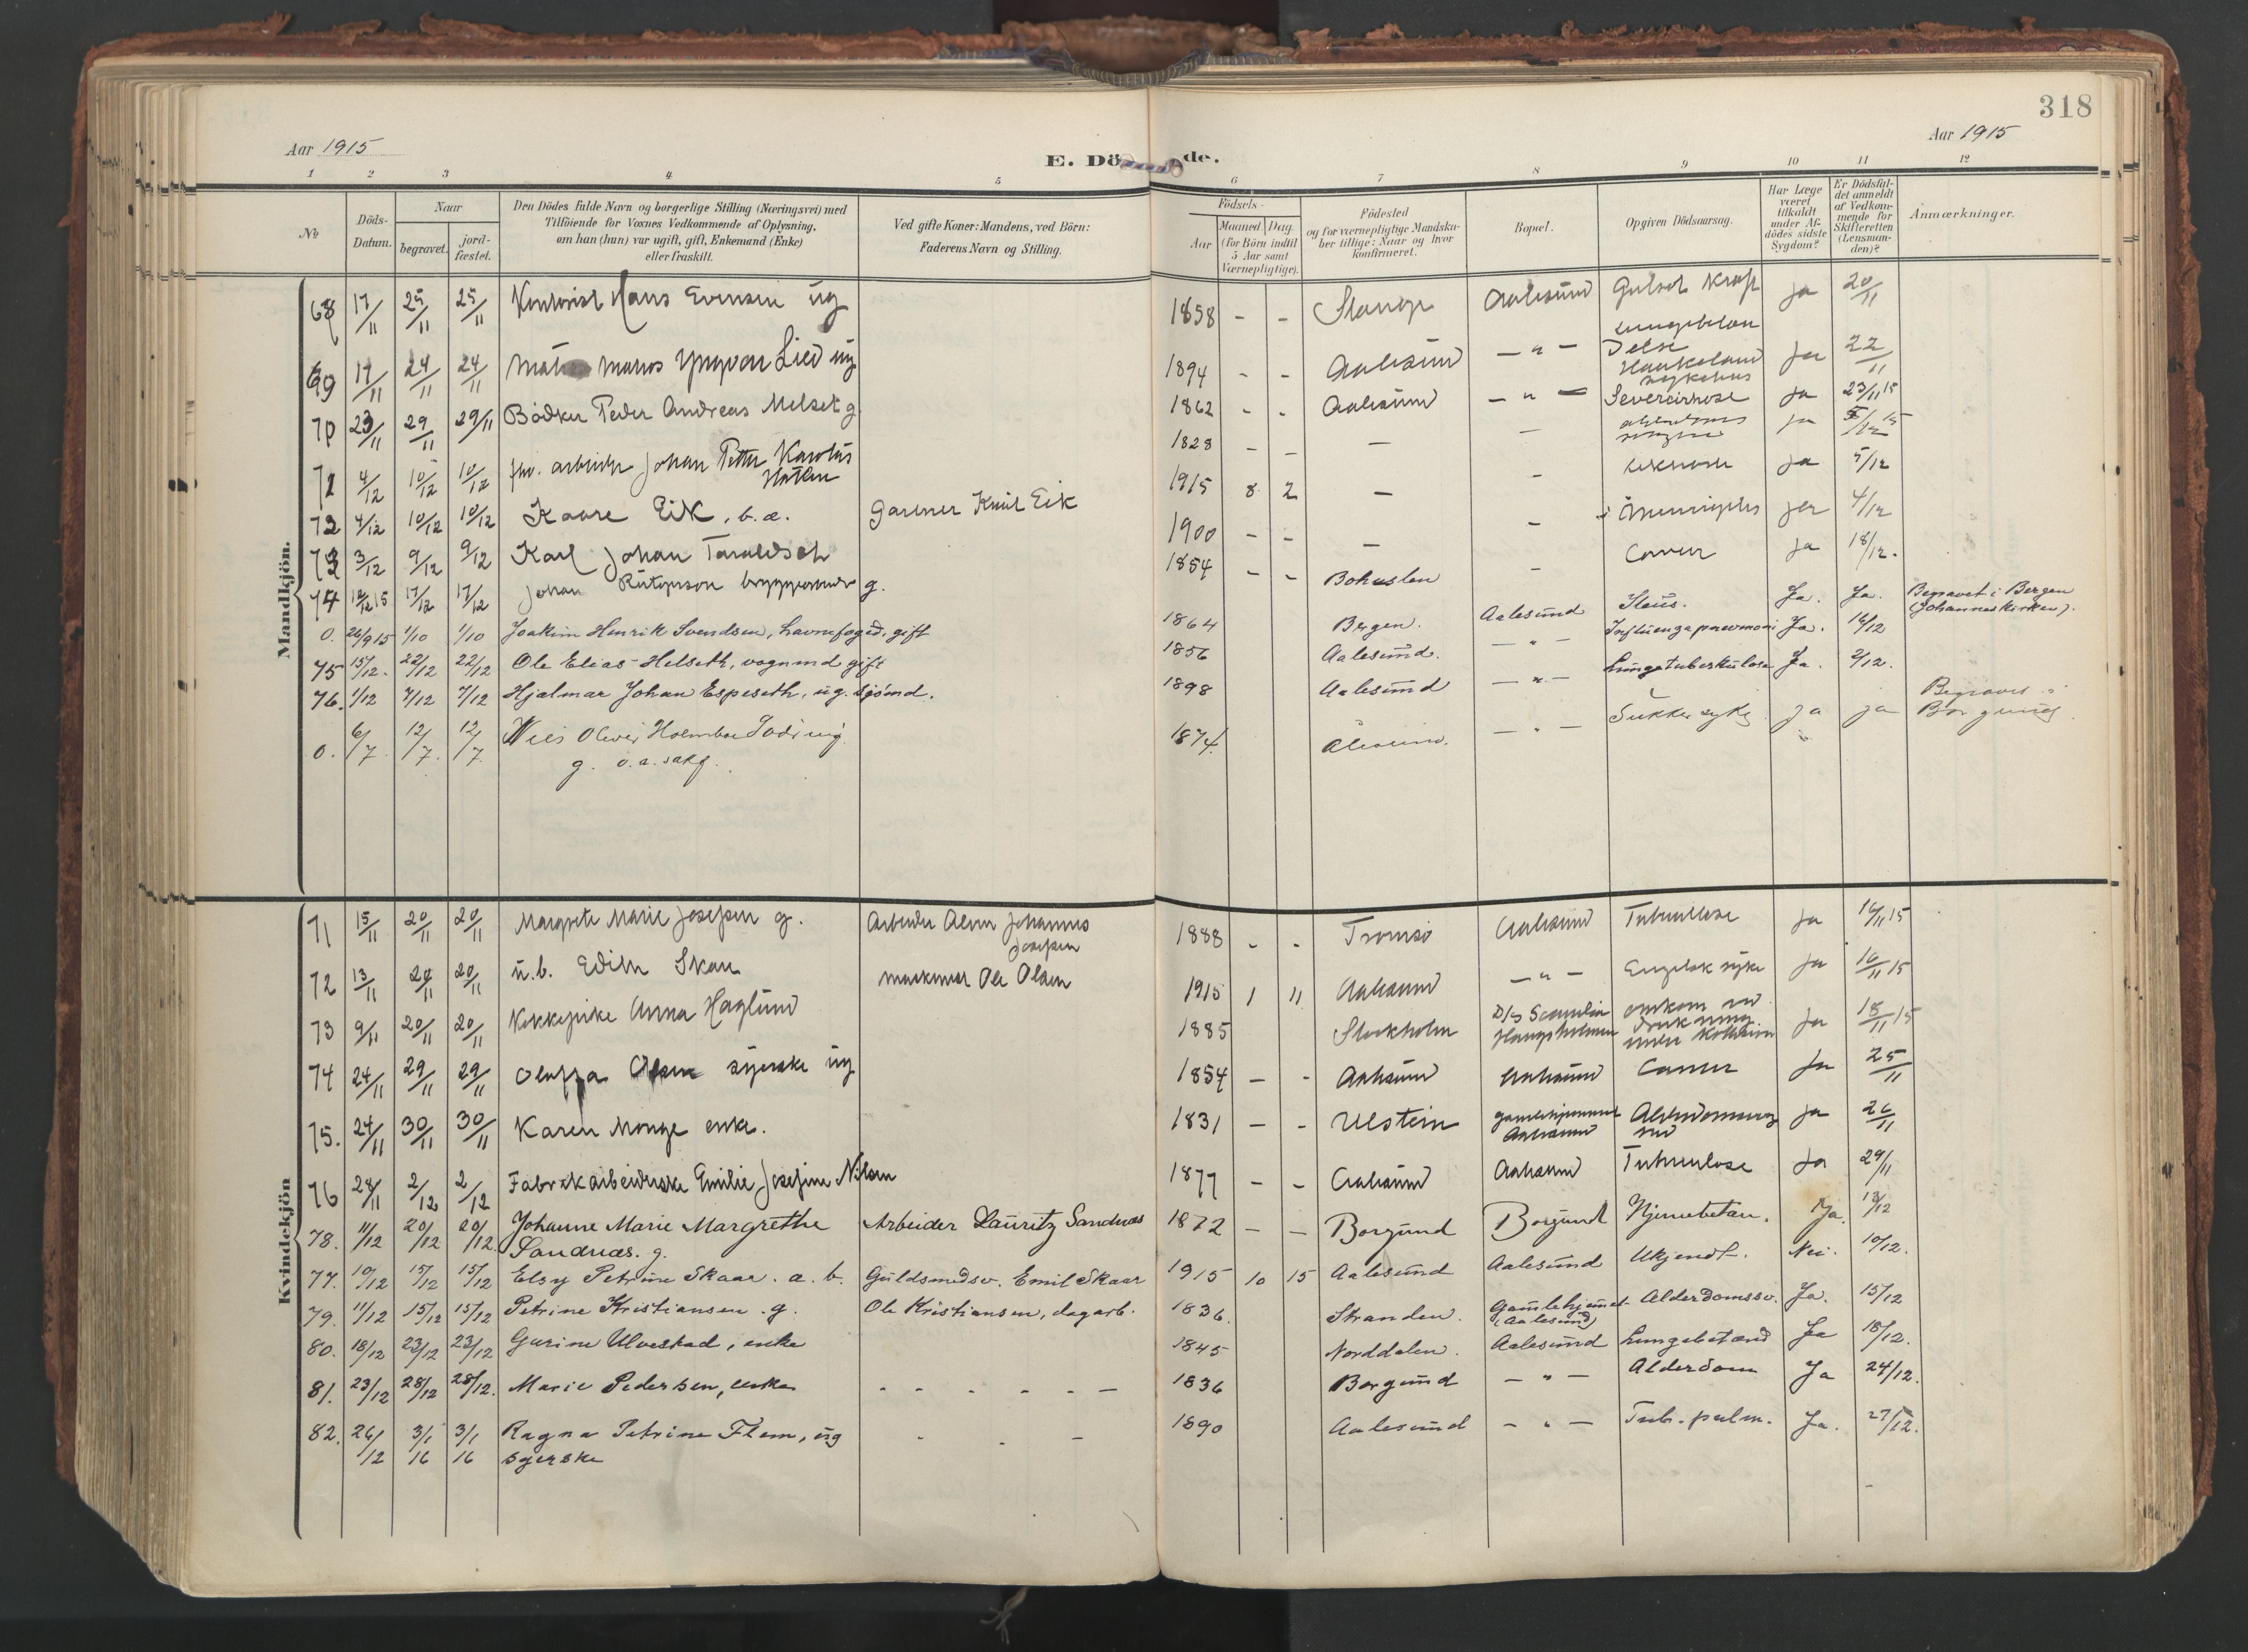 318
Aar 1915
Aar 1915
E. Dö de.
1 2 3 4 5 6 7 8 9 10 11 12
№
Döds-Datum.
Naar
begravet.
jord-fæstet.
Den Dödes fulde Navn og borgerlige Stilling (Næringsvei) med
Tilföiende for Voxnes Vedkommende af Oplysning,
om han (hun) var ugift, gift, Enkemand (Enke)
eller fraskilt.
Ved gifte Koner: Mandens, ved Börn:
Faderens Navn og Stilling.
Födsels-
Aar
Maaned Dag
(for Börn indtil
5 Aar samt
Værnepligtige).
Födested
og for værnepligtige Mandska-
ber tillige: Naar og hvor
konfirmeret.
Bopæl.
Opgiven Dödsaarsag.
Har Læge
været
tilkaldt
under Af-
dödes sidste
Sygdom?
Er Dödsfal-
det anmeldt
af Vedkom-
mende for
Skifteretten
(Lensman-
den)?
Anmærkninger.
Mandkjön.
68 17/11 25/11 25/11 Kontorist Hans Evensen ug 1858 - - Stange Aalesund Ja 20/11
69 17/11 24/11 24/11 Yngvar Lied ug 1894 - - Aalesund — " — Lungebetændelse Haukeland sykehus Ja 22/11
70 23/11 29/11 29/11 Bødker Peder Andreas Melset g. 1862 - - Aalesund — " — Levercirrhose Ja 23/11 15
71 4/12 10/12 10/12 fhv. arbeider Johan Petter Karolus Hatlen 1828 - - — — Ja 5/12 15
72 4/12 10/12 10/12 Kaare Eik, b. æ. Gartner Knut Eik 1915 8 2 — - Ja 5/12
73 3/12 9/12 9/12 Karl Johan Taraldset 1900 - - — - Ja 4/12
74 12/12 15 17/12 17/12 Johan g. 1854 - - Bohuslen - Cancer Ja 18/12.
0. 26/9 15 1/10 1/10 Joakim Henrik Svendsen, havnefoged, gift 1864 Bergen. Aalesund Ileus. Ja. Ja. Begravet i Bergen
(Johanneskirken).
75 15/12. 22/12 22/12 Ole Elias Helseth, vognmd gift 1856 Aalesund. — " — Influenzapneumoni Ja. 16/12
76. 1/12 7/12 7/12 Hjalmar Johan Espeseth, ug. sjømd. 1898 Aalesund — " — Lungetuberkulose Ja. 2/12.
0. 6/7 12/7. 12/7 Oliver Holmboe
g. o.a. sakf. 1874 Ålesund. — " — Sukkersyke ja ja Begravet i
Borgund
Kvindekjön
71 15/11 20/11 20/11 Margrete Marie Josefsen g. Arbeider Johannes
Josefsen 1888 - - Tromsø Aalesund Tuberkulose Ja 16/11 15
72 13/11 20/11 20/11 u.b. Edith Skau maskinist Ole Olsen 1915 1 11 Aalesund — " — Engelsk syke Ja 16/11 15
73 9/11 20/11 20/11 Kokkepike Anna Haglund 1885 Stockholm D/s omkom ved
drukning
under kollision Ja 18/11 15
74 24/11 29/11 29/11 Oluffa Olsen syerske ug 1854 — - Aalesund Aalesund Cancer Ja 25/11
75. 24/11 30/11 30/11 Karen Monge enke. 1831 — - Ulstein Gamlehjemmet
Aalesund Ja 26/11
76 28/11 2/12 2/12 Fabrikarbeiderske Emilie Josefine Nilsen 1877 — - Aalesund Aalesund Tuberkulose Ja 29/11
78. 11/12 20/12 20/12. Johanne Marie Margrethe
Sandnæs. g. Arbeider Lauritz Sandnæs 1872 — — Borgund Borgund Hjernebetæn. Ja. 13/12
77. 10/12 15/12 15/12 Elsy Petrine Skaar. a. b. Guldsmedsv. Emil Skaar 1915 10 15 Aalesund Aalesund Ukjendt. Nei. 10/12.
79. 11/12 15/12 15/12 Petrine Kristiansen. g. Ole Kristiansen, dagarb. 1836. Stranden. Gamlehjemmet
(Aalesund) Alderdomssv. Ja. 15/12
80. 18/12 23/12 23/12 Gurine Ulvestad, enke 1845 Norddalen. Aalesund Lungebetænd Ja 18/12.
81. 23/12 28/12 28/12. Marie Pedersen, enke - - - - - — 1836 Borgund — " — Alderdom Ja 24/12.
82. 26/12 3/1 16 3/1 16 Ragna Petrine Flem, ug
syerske - - — 1890 Aalesund — " — Tub. pulm. Ja. 27/12.